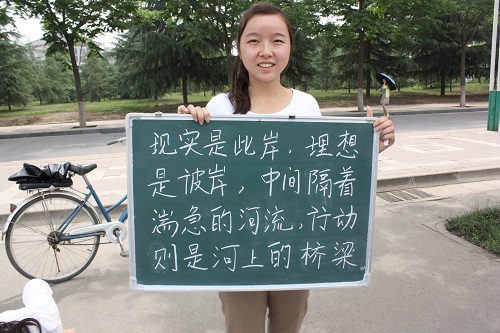 现实是此岸，理想
是彼岸，中间隔着
湍急的河流，行动
则是河上的桥梁